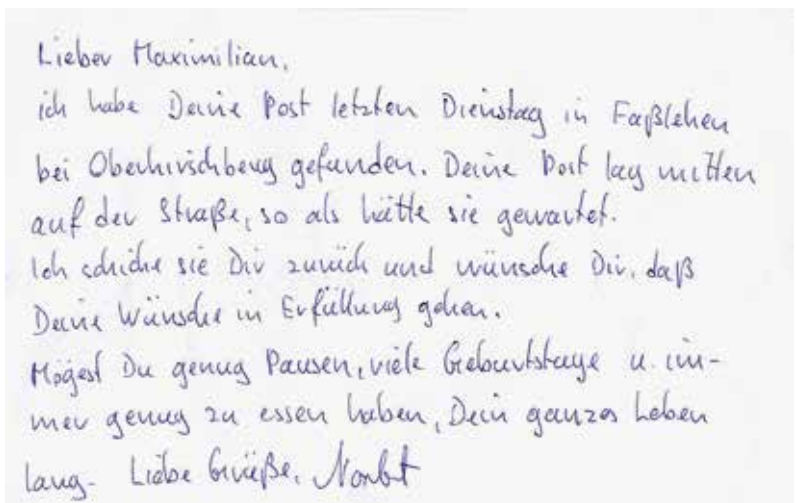 Lieber Maximilian,
ich habe Deine Post letzten Dienstag in Faßlehen
bei Oberhirschberg gefunden. Deine Post lag mitten
auf der Straße, so als hätte sie gewartet.
Ich schicke sie Dir zurück und wünsche Dir, daß
Deine Wünsche in Erfüllung gehen.
Mögest Du genug Pausen, viele Geburtstage u. im-
mer genug zu essen haben, Dein ganzes Leben
lang. Liebe Grüße, Norbert